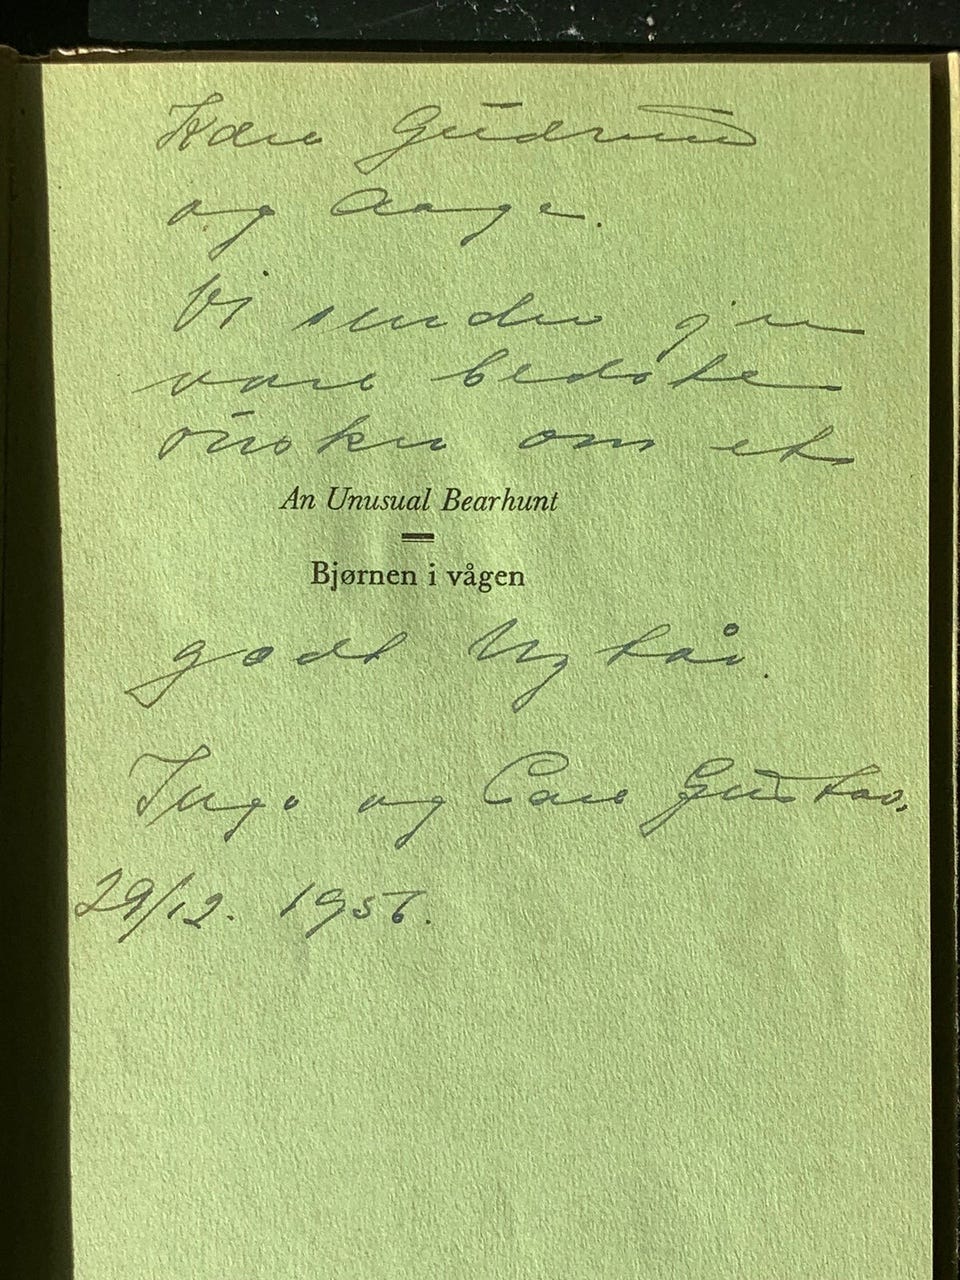 Kære Gudrun
og Aage.
Vi sender jer
vore bedste
ønsker om et
An Unusual Bearhunt
Bjørnen i vågen
godt Nytår.
Inge og Carl Gustav.
29/12. 1956.